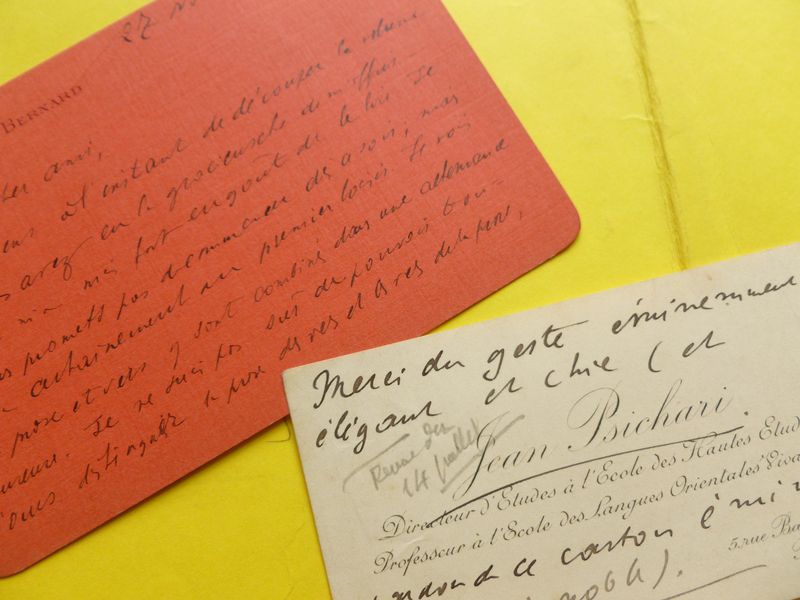 27 No
BERNARD
ami,
à l'instant de découper le volume
avez eu la gracieuseté de m'offrir
mis fort en goût de le lire. Je
promets pas de commencer dès ce soir, mais
certainement un premier loisir. Je vois
prose et vers y sont combinés dans une alternance
Je ne suis pas sûr de pouvoir tou-
jours distinguer la prose des vers et les vers de la prose,
Merci du geste éminemment
élégant et chic (et
Revue du
14 juillet
Jean Psichari.
Directeur d'Etudes à l'Ecole des Hautes Etud
Professeur à l'Ecole des Langues Orientales Viva
pardon de ce carton émi
5, rue Ba
noble).